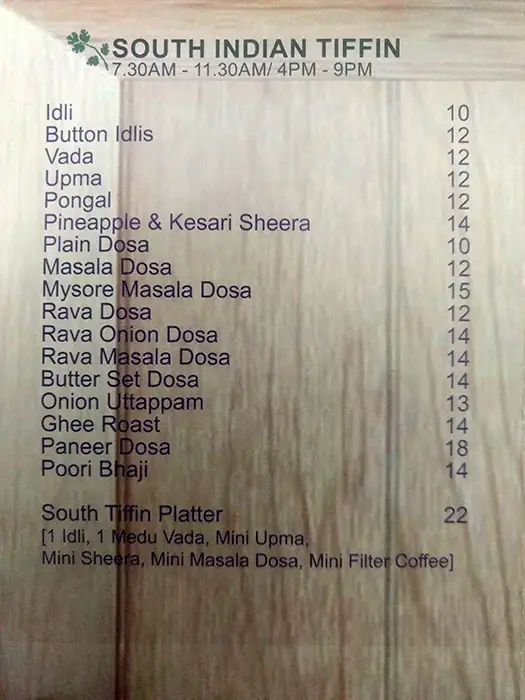 SOUTH INDIAN TIFFIN
7.30AM - 11.30AM/ 4PM - 9PM
Idli 10
Button Idlis 12
Vada 12
Upma 12
Pongal 12
Pineapple & Kesari Sheera 14
Plain Dosa 10
Masala Dosa 12
Mysore Masala Dosa 15
Rava Dosa 12
Rava Onion Dosa 14
Rava Masala Dosa 14
Butter Set Dosa 14
Onion Uttappam 13
Ghee Roast 14
Paneer Dosa 18
Poori Bhaji 14
South Tiffin Platter 22
[1 Idli, 1 Medu Vada, Mini Upma,
Mini Sheera, Mini Masala Dosa, Mini Filter Coffee]